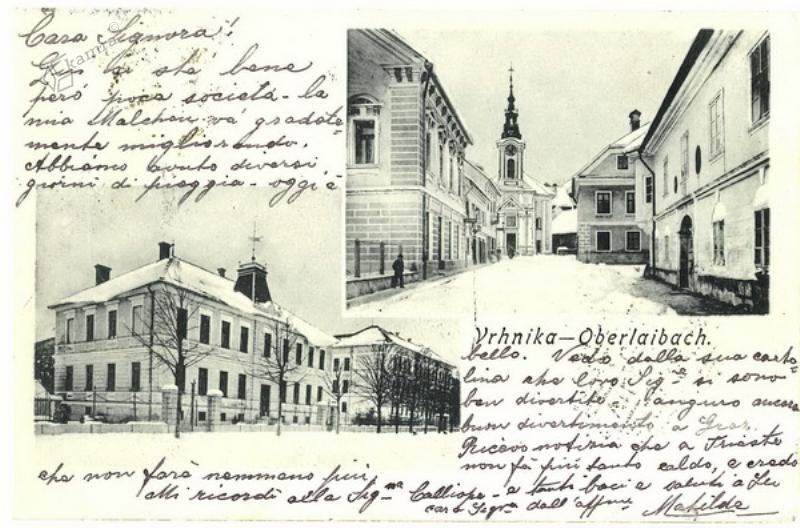 Cara Signora!
Qui si sta bene
però poca società - la
mia Malchen va gradata=
mente migliorando.
Abbiamo avuto diversi
giorni di pioggia - oggi è
Vrhnika — Oberlaibach.
bello. Vedo dalla sua carto=
lina che loro Sig.e si sono
ben divertite - auguro ancora
buon divertimento a Graz.
Ricevo notizia che a Trieste
non fa più tanto caldo, e credo
che non farà nemmeno più.
Mi ricordi alla Sig.na Calliope - e tanti baci e saluti a Lei
cara Sigra dall'affma Matilde
kamra